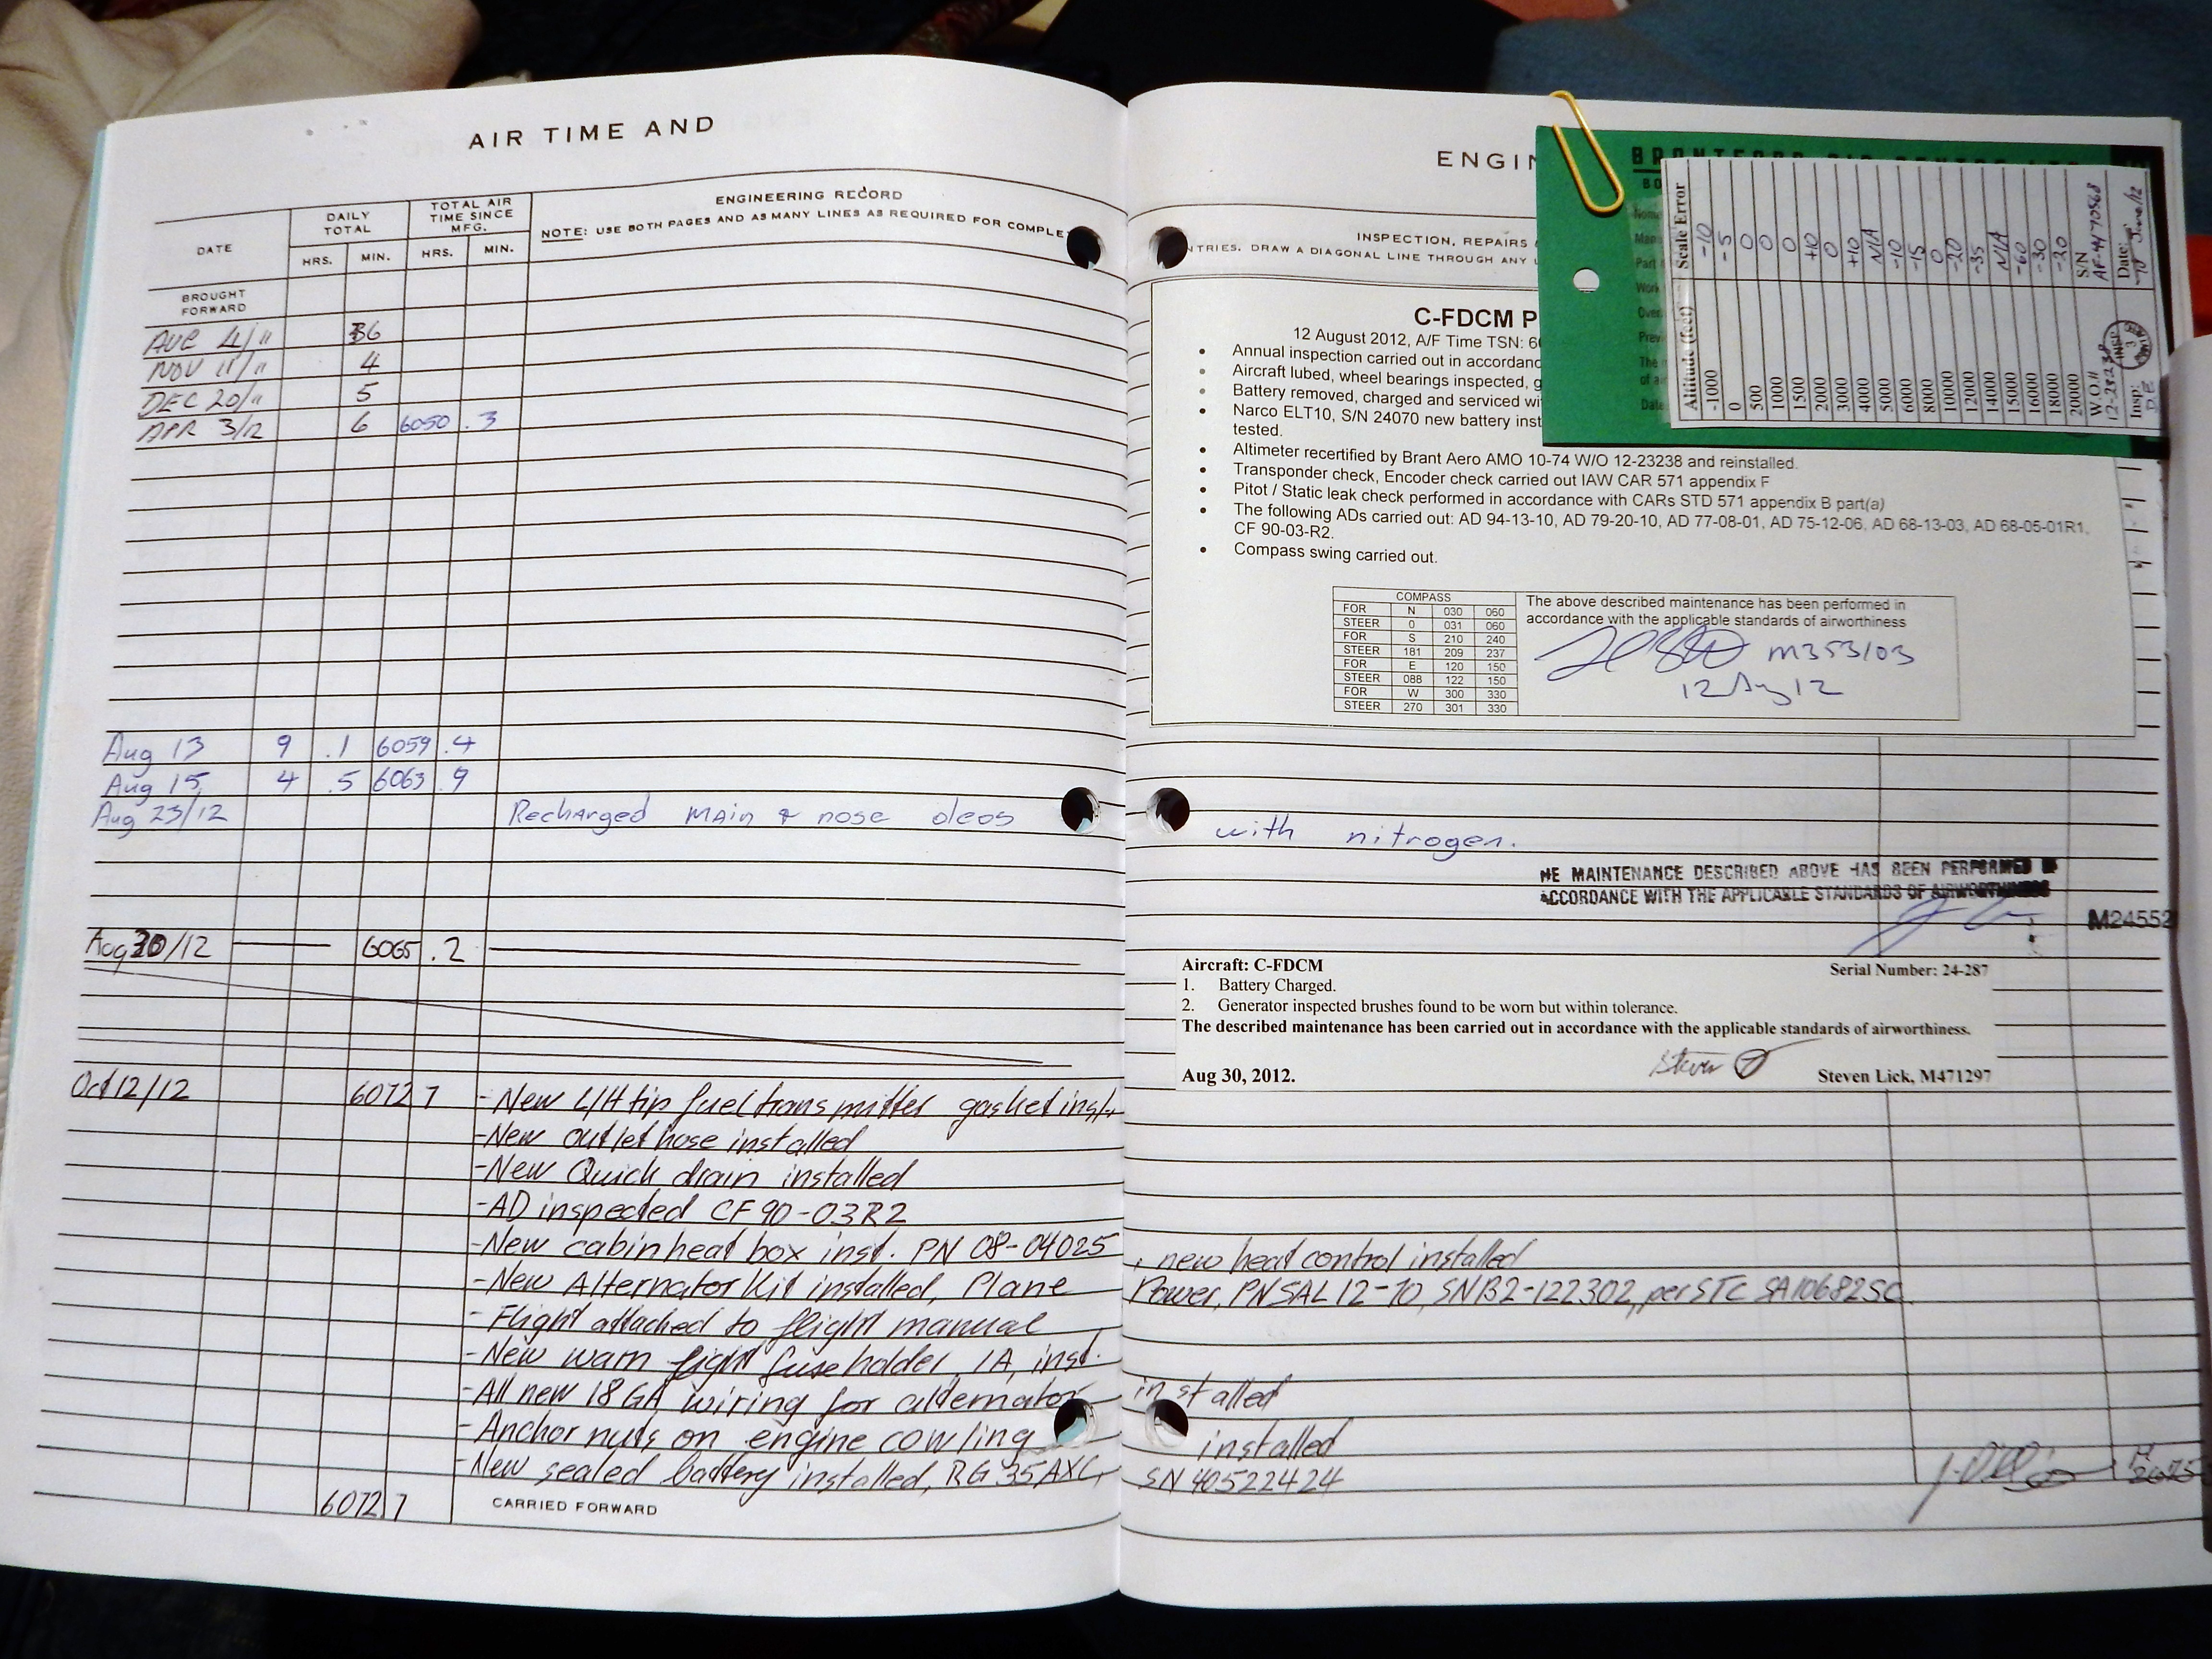 AIR TIME AND
DATE
DAILY TOTAL
TOTAL AIR TIME SINCE MFG.
HRS. MIN. HRS. MIN.
ENGINEERING RECORD
NOTE: USE BOTH PAGES AND AS MANY LINES AS REQUIRED FOR COMPLE
BROUGHT FORWARD
AUG 4/11 36
NOV 11/11 4
DEC 20/11 5
APR 3/12 6 6050 .3
Aug 13 9 .1 6059 .4
Aug 15 4 .5 6063 .9
Aug 23/12 Recharged main & nose oleos
Aug 30/12 6065 .2
Oct 12/12 6072 7 - New L/H tip fuel transmitter gasket inst.
- New outlet hose installed
- New Quick drain installed
- AD inspected CF 90-03R2
- New cabin heat box inst. PN 08-04025
- New Alternator Kit installed, Plane
- Flight attached to flight manual
- New warn light fuse holder, 1A, inst.
- All new 18 GA wiring for alternator
- Anchor nuts on engine cowling
- New sealed battery installed, RG 35AXC,
6072 7 CARRIED FORWARD
ENGIN
INSPECTION, REPAIRS
NTRIES. DRAW A DIAGONAL LINE THROUGH ANY
C-FDCM P
12 August 2012, A/F Time TSN: 60
• Annual inspection carried out in accordanc
• Aircraft lubed, wheel bearings inspected, g
• Battery removed, charged and serviced wi
• Narco ELT10, S/N 24070 new battery inst
tested.
• Altimeter recertified by Brant Aero AMO 10-74 W/O 12-23238 and reinstalled.
• Transponder check, Encoder check carried out IAW CAR 571 appendix F
• Pitot / Static leak check performed in accordance with CARs STD 571 appendix B part(a)
• The following ADs carried out: AD 94-13-10, AD 79-20-10, AD 77-08-01, AD 75-12-06, AD 68-13-03, AD 68-05-01R1,
CF 90-03-R2.
• Compass swing carried out.
COMPASS
FOR N 030 060
STEER 0 031 060
FOR S 210 240
STEER 181 209 237
FOR E 120 150
STEER 088 122 150
FOR W 300 330
STEER 270 301 330
The above described maintenance has been performed in
accordance with the applicable standards of airworthiness
M353103
12 Aug 12
Altitude (feet) Scale Error
-1000 -10
0 -5
500 0
1000 0
1500 0
2000 +10
3000 0
4000 +10
5000 N/A
6000 -10
8000 -15
10000 0
12000 -20
14000 -35
15000 N/A
16000 -60
18000 -30
20000 -20
W.O.# S/N
12-23238 AF-44/70568
Insp: Date:
with nitrogen.
HE MAINTENANCE DESCRIBED ABOVE HAS BEEN PERFORMED
ACCORDANCE WITH THE APPLICABLE STANDARDS OF AIRWORTHINESS
M24552
Aircraft: C-FDCM Serial Number: 24-287
1. Battery Charged.
2. Generator inspected brushes found to be worn but within tolerance.
The described maintenance has been carried out in accordance with the applicable standards of airworthiness.
Aug 30, 2012. Steven Lick, M471297
, new heat control installed
Power, PN SAL 12-70, SN B2-122302, per STC SA10682SC
installed
installed
SN 40522424